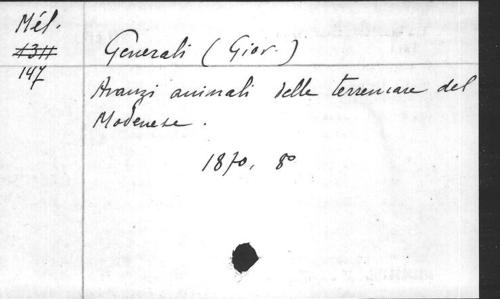 Mél.
1311
147
Generali (Giov.)
Avanzi animali delle terremare del
Modenese.
1870, 8°